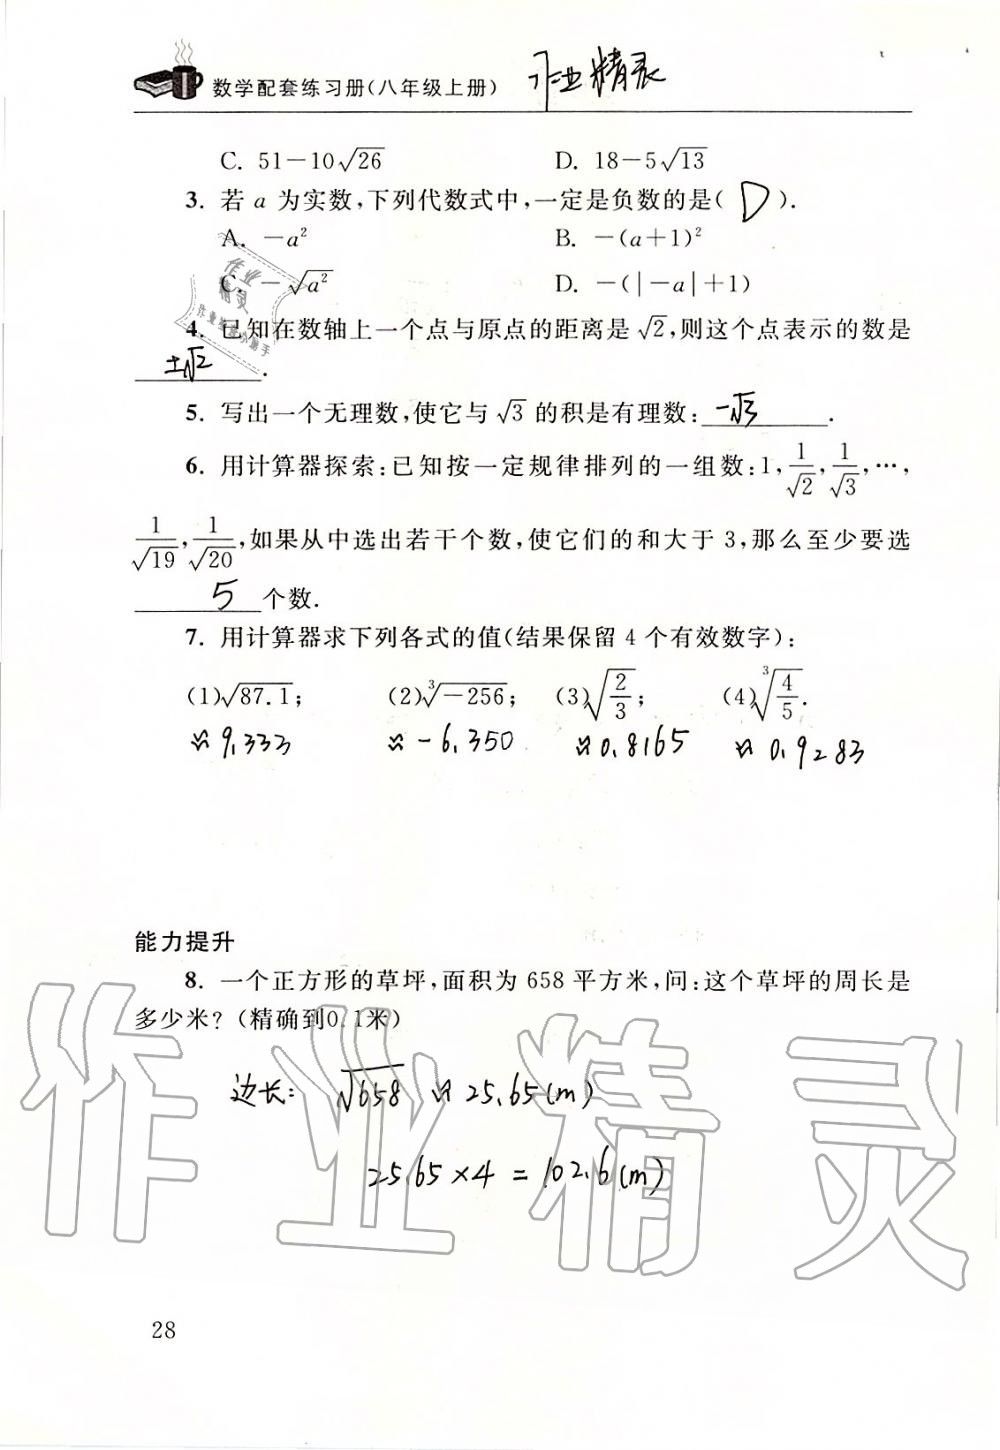 数学配套练习册(八年级上册) 作业精灵
C. 51－10√26  D. 18－5√13
3. 若 a 为实数,下列代数式中,一定是负数的是( D ).
A. －a²  B. －(a＋1)²
C. －√a²  D. －(|－a|＋1)
4. 已知在数轴上一个点与原点的距离是 √2,则这个点表示的数是
±√2.
5. 写出一个无理数,使它与 √3 的积是有理数: －√3.
6. 用计算器探索:已知按一定规律排列的一组数:1, 1/√2, 1/√3, …,
1/√19, 1/√20, 如果从中选出若干个数,使它们的和大于 3,那么至少要选
5 个数.
7. 用计算器求下列各式的值(结果保留 4 个有效数字):
(1)√87.1;  (2)³√－256;  (3)√(2/3);  (4)³√(4/5).
≈9.333  ≈－6.350  ≈0.8165  ≈0.9283
能力提升
8. 一个正方形的草坪,面积为 658 平方米,问:这个草坪的周长是
多少米?(精确到0.1米)
边长: √658 ≈ 25.65(m)
25.65×4=102.6(m)
28
作业精灵
作业精灵